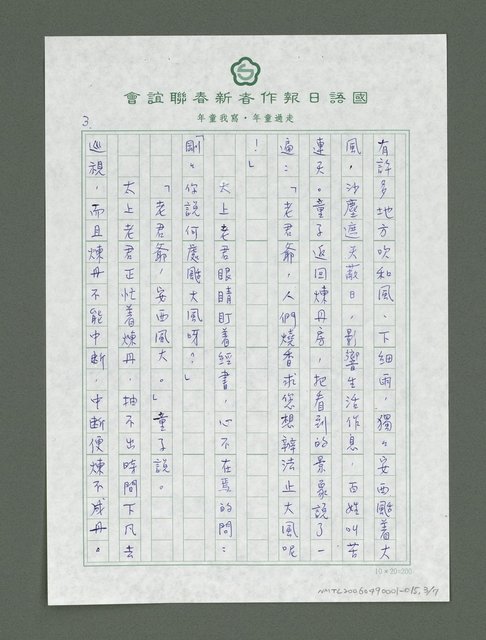 國語日報作者新春聯誼會
走過童年・寫我童年
3.
有許多地方吹和風、下細雨，獨々安西颳着大
風，沙塵遮天蔽日，影響生活作息，百姓叫苦
連天。童子返回煉丹房，把看到的景象說了一
遍：「老君爺，人們燒香求您想辦法止大風呢
！」
太上老君眼睛盯着經書，心不在焉的問：
「剛々你說何處颳大風呀？」
「老君爺，安西風大。」童子說。
太上老君正忙着煉丹，抽不出時間下凡去
巡視，而且煉丹不能中斷，中斷便煉不成丹。
10×20=200
NMTL20060490001-015, 3/7